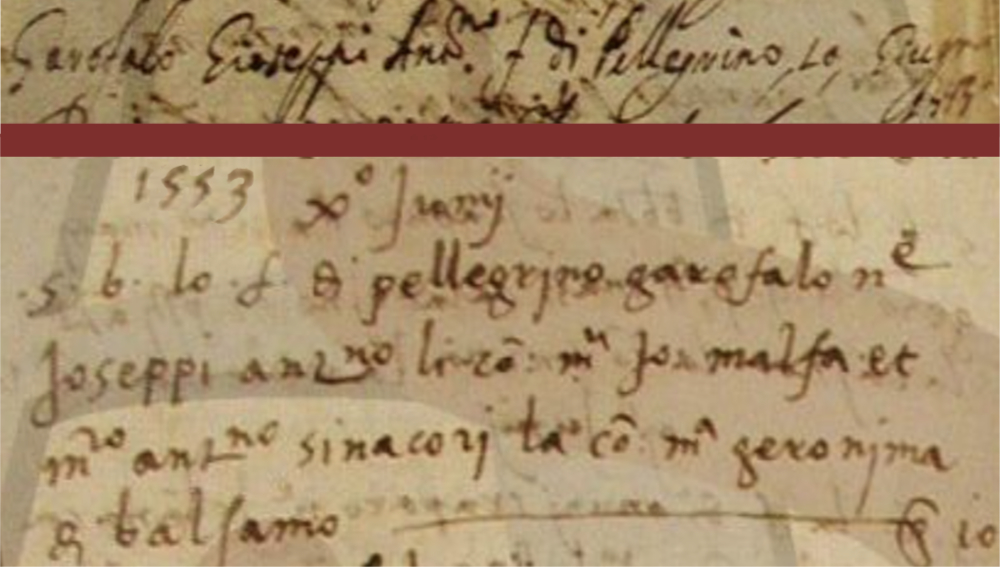 Garofalo Gioseppi Ant.no f di Pellegrino 10 Giugno
1553
1553
xº Junij
S. b. lo f di pellegrino garofalo nē
Joseppi antno li cō: mº Jo: malfa et
mro antno sinacorj la cō: mª geronima
di balsamo 10